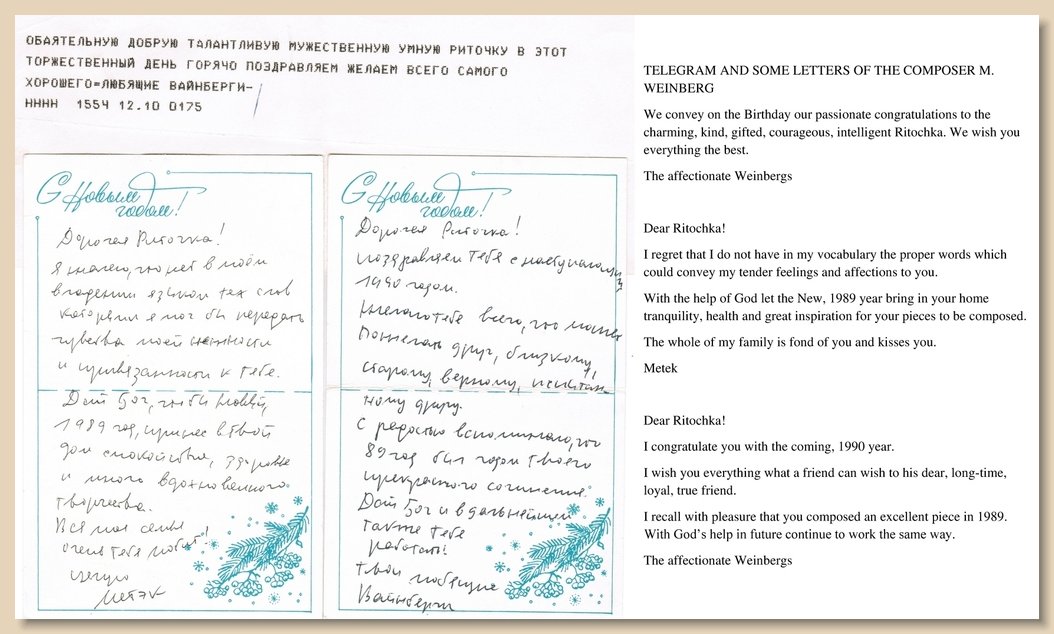 ОБАЯТЕЛЬНУЮ ДОБРУЮ ТАЛАНТЛИВУЮ МУЖЕСТВЕННУЮ УМНУЮ РИТОЧКУ В ЭТОТ
ТОРЖЕСТВЕННЫЙ ДЕНЬ ГОРЯЧО ПОЗДРАВЛЯЕМ ЖЕЛАЕМ ВСЕГО САМОГО
ХОРОШЕГО=ЛЮБЯЩИЕ ВАЙНБЕРГИ-
НННН 1554 12.10 0175
С Новым
годом!
Дорогая Риточка!
Я знаю, что нет в моём
владении языком тех слов
которыми я мог бы передать
чувства моей нежности
и привязанности к тебе.
Дай Бог, чтобы Новый,
1989 год, принес в твой
дом спокойствие, здоровье
и много вдохновенного
творчества.
Вся моя семья
очень тебя любит!
целую
Метэк
С Новым
годом!
Дорогая Риточка!
поздравляем тебя с наступающим
1990 годом.
Желаю тебе всего, что может
пожелать друг, близкому,
старому, верному, испытан
ному другу.
С радостью вспоминаю, что
89 год был годом твоего
прекрасного сочинения.
Дай Бог и в дальнейшем
также тебе
работать!
твои любящие
Вайнберги
TELEGRAM AND SOME LETTERS OF THE COMPOSER M.
WEINBERG
We convey on the Birthday our passionate congratulations to the
charming, kind, gifted, courageous, intelligent Ritochka. We wish you
everything the best.
The affectionate Weinbergs
Dear Ritochka!
I regret that I do not have in my vocabulary the proper words which
could convey my tender feelings and affections to you.
With the help of God let the New, 1989 year bring in your home
tranquility, health and great inspiration for your pieces to be composed.
The whole of my family is fond of you and kisses you.
Metek
Dear Ritochka!
I congratulate you with the coming, 1990 year.
I wish you everything what a friend can wish to his dear, long-time,
loyal, true friend.
I recall with pleasure that you composed an excellent piece in 1989.
With God's help in future continue to work the same way.
The affectionate Weinbergs